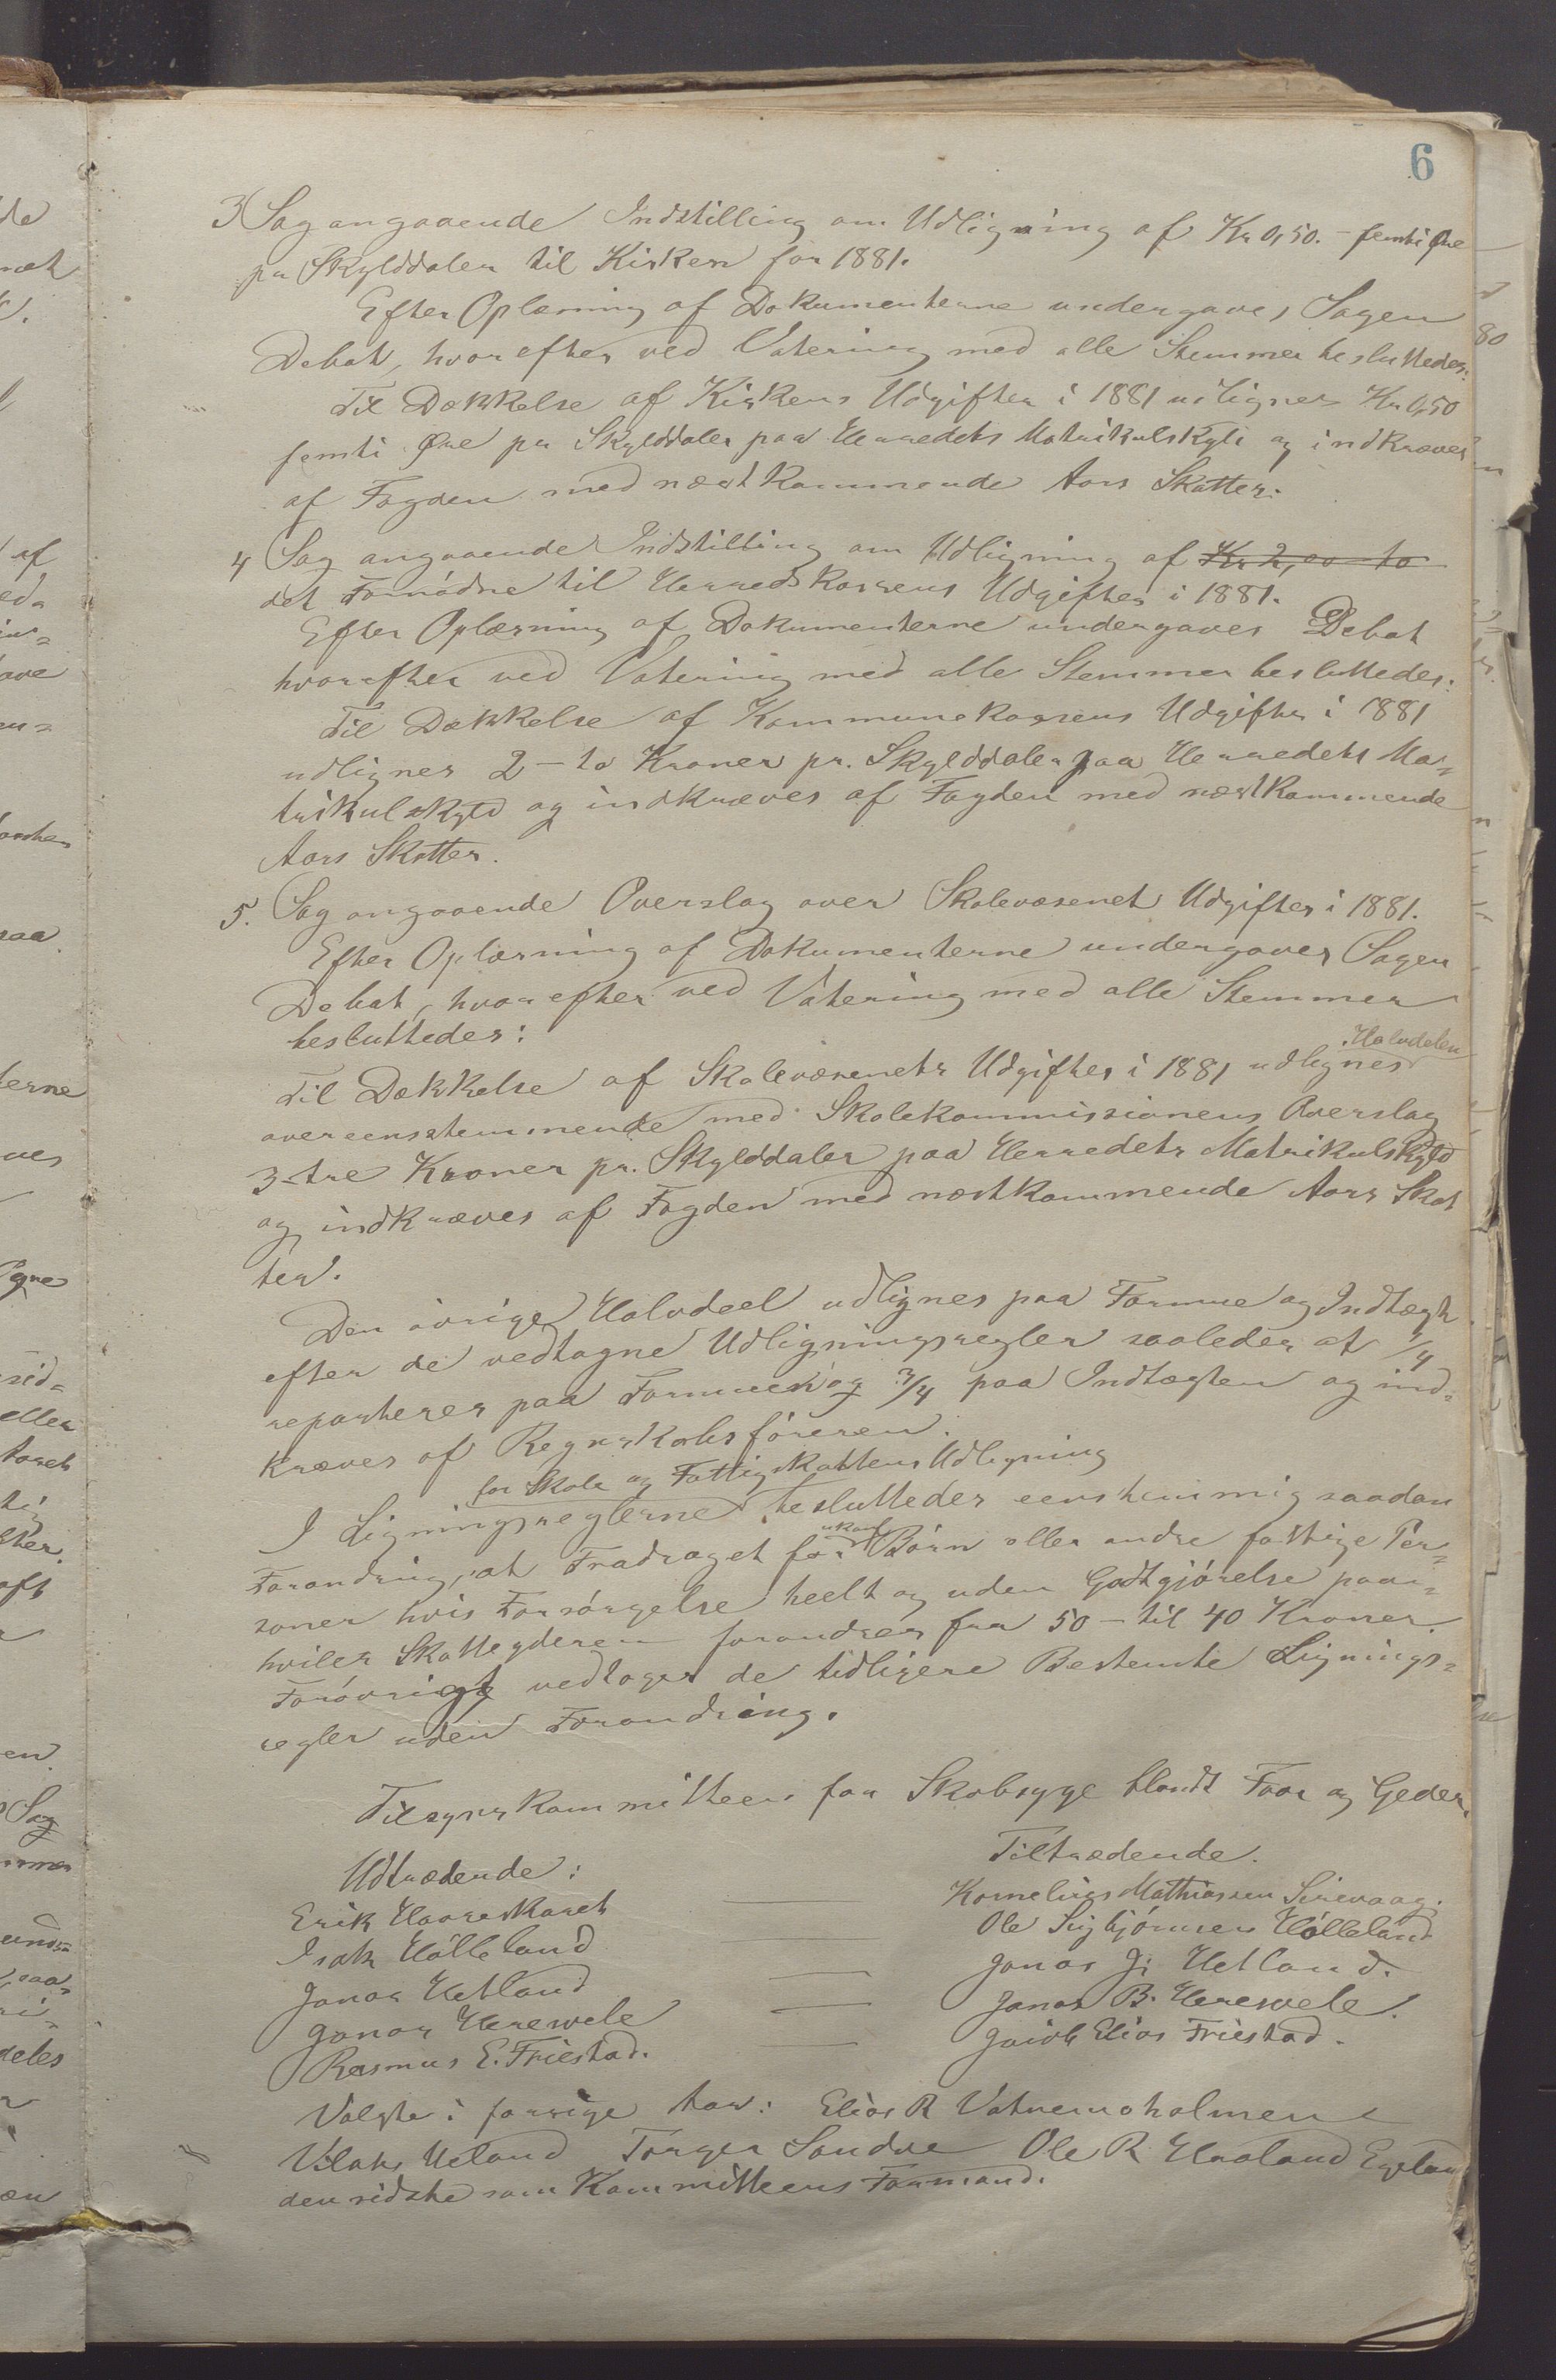 6
3 Sag angaaende Indstilling om Udligning af Kr 0,50. - femti Øre
pr Skylddaler til Kirken for 1881.
Efter Oplæsning af Dokumenterne undergaves Sagen
Debat, hvorefter ved Votering med alle Stemmer besluttedes:
Til Dækkelse af Kirkens Udgifter i 1881 udlignes Kr 0,50
femti Øre pr Skylddaler paa Herredets Matrikulskyld og indkræves
af Fogden med næstkommende Aars Skatter.
4 Sag angaaende Indstilling om Udligning af Kr 2,00 to
det Fornødne til Herredskassens Udgifter i 1881.
Efter Oplæsning af Dokumenterne undergaves Debat
hvorefter ved Votering med alle Stemmer besluttedes:
Til Dækkelse af Kommunekassens Udgifter i 1881
udlignes 2 - to Kroner pr. Skylddaler paa Herredets Ma-
trikulskyld og indkræves af Fogden med næstkommende
Aars Skatter.
5. Sag angaaende Overslag over Skolevæsenet Udgifter i 1881.
Efter Oplæsning af Dokumenterne undergaves Sagen
Debat, hvorefter ved Votering med alle Stemmer
besluttedes:
Halvdelen
Til Dækkelse af Skolevæsenets Udgifter i 1881 udlignes
overeensstemmende med Skolekommissionens Overslag
3 - tre Kroner pr. Skylddaler paa Herredets Matrikulskyld
og indkræves af Fogden med næstkommende Aars Skat
ter.
Den øvrige Halvdeel udlignes paa Formue og Indtægt
efter de vedtagne Udligningsregler saaledes at 1/4
reparteres paa Formuen og 3/4 paa Indtægten og ind-
kræves af Regnskabsføreren.
for Skole og Fattigskattens Udligning
I Ligningsreglerne besluttedes eenstemmig saadan
Forandring, at Fradraget for Børn eller andre fattige Per-
soner hvis Forsørgelse heelt og uden Godtgjørelse paa-
hviler Skatteyderen forandres fra 50 - til 40 Kroner.
Forøvrigt vedtages de tidligere Bestemte Lignings-
regler uden Forandring.
Tilsynskommitteen for Skabsyge blandt Faar og Geder.
Udtrædende: Tiltrædende.
Erik Haareskaret — Kornelius Mathiassen Sirevaag.
Isak Hølleland — Ole Sigbjørnsen Hølleland
Jonas Hetland — Jonas J. Hetland.
Jonas Herevele — Jonas B. Herevele.
Rasmus E. Friestad. — Jakob Elias Friestad.
Valgte i forrige Aar: Elias R Vatnemoholmen
Ueland Torger Sandve Ole R Haaland Egeland
den sidste som Kommitteens Formand.